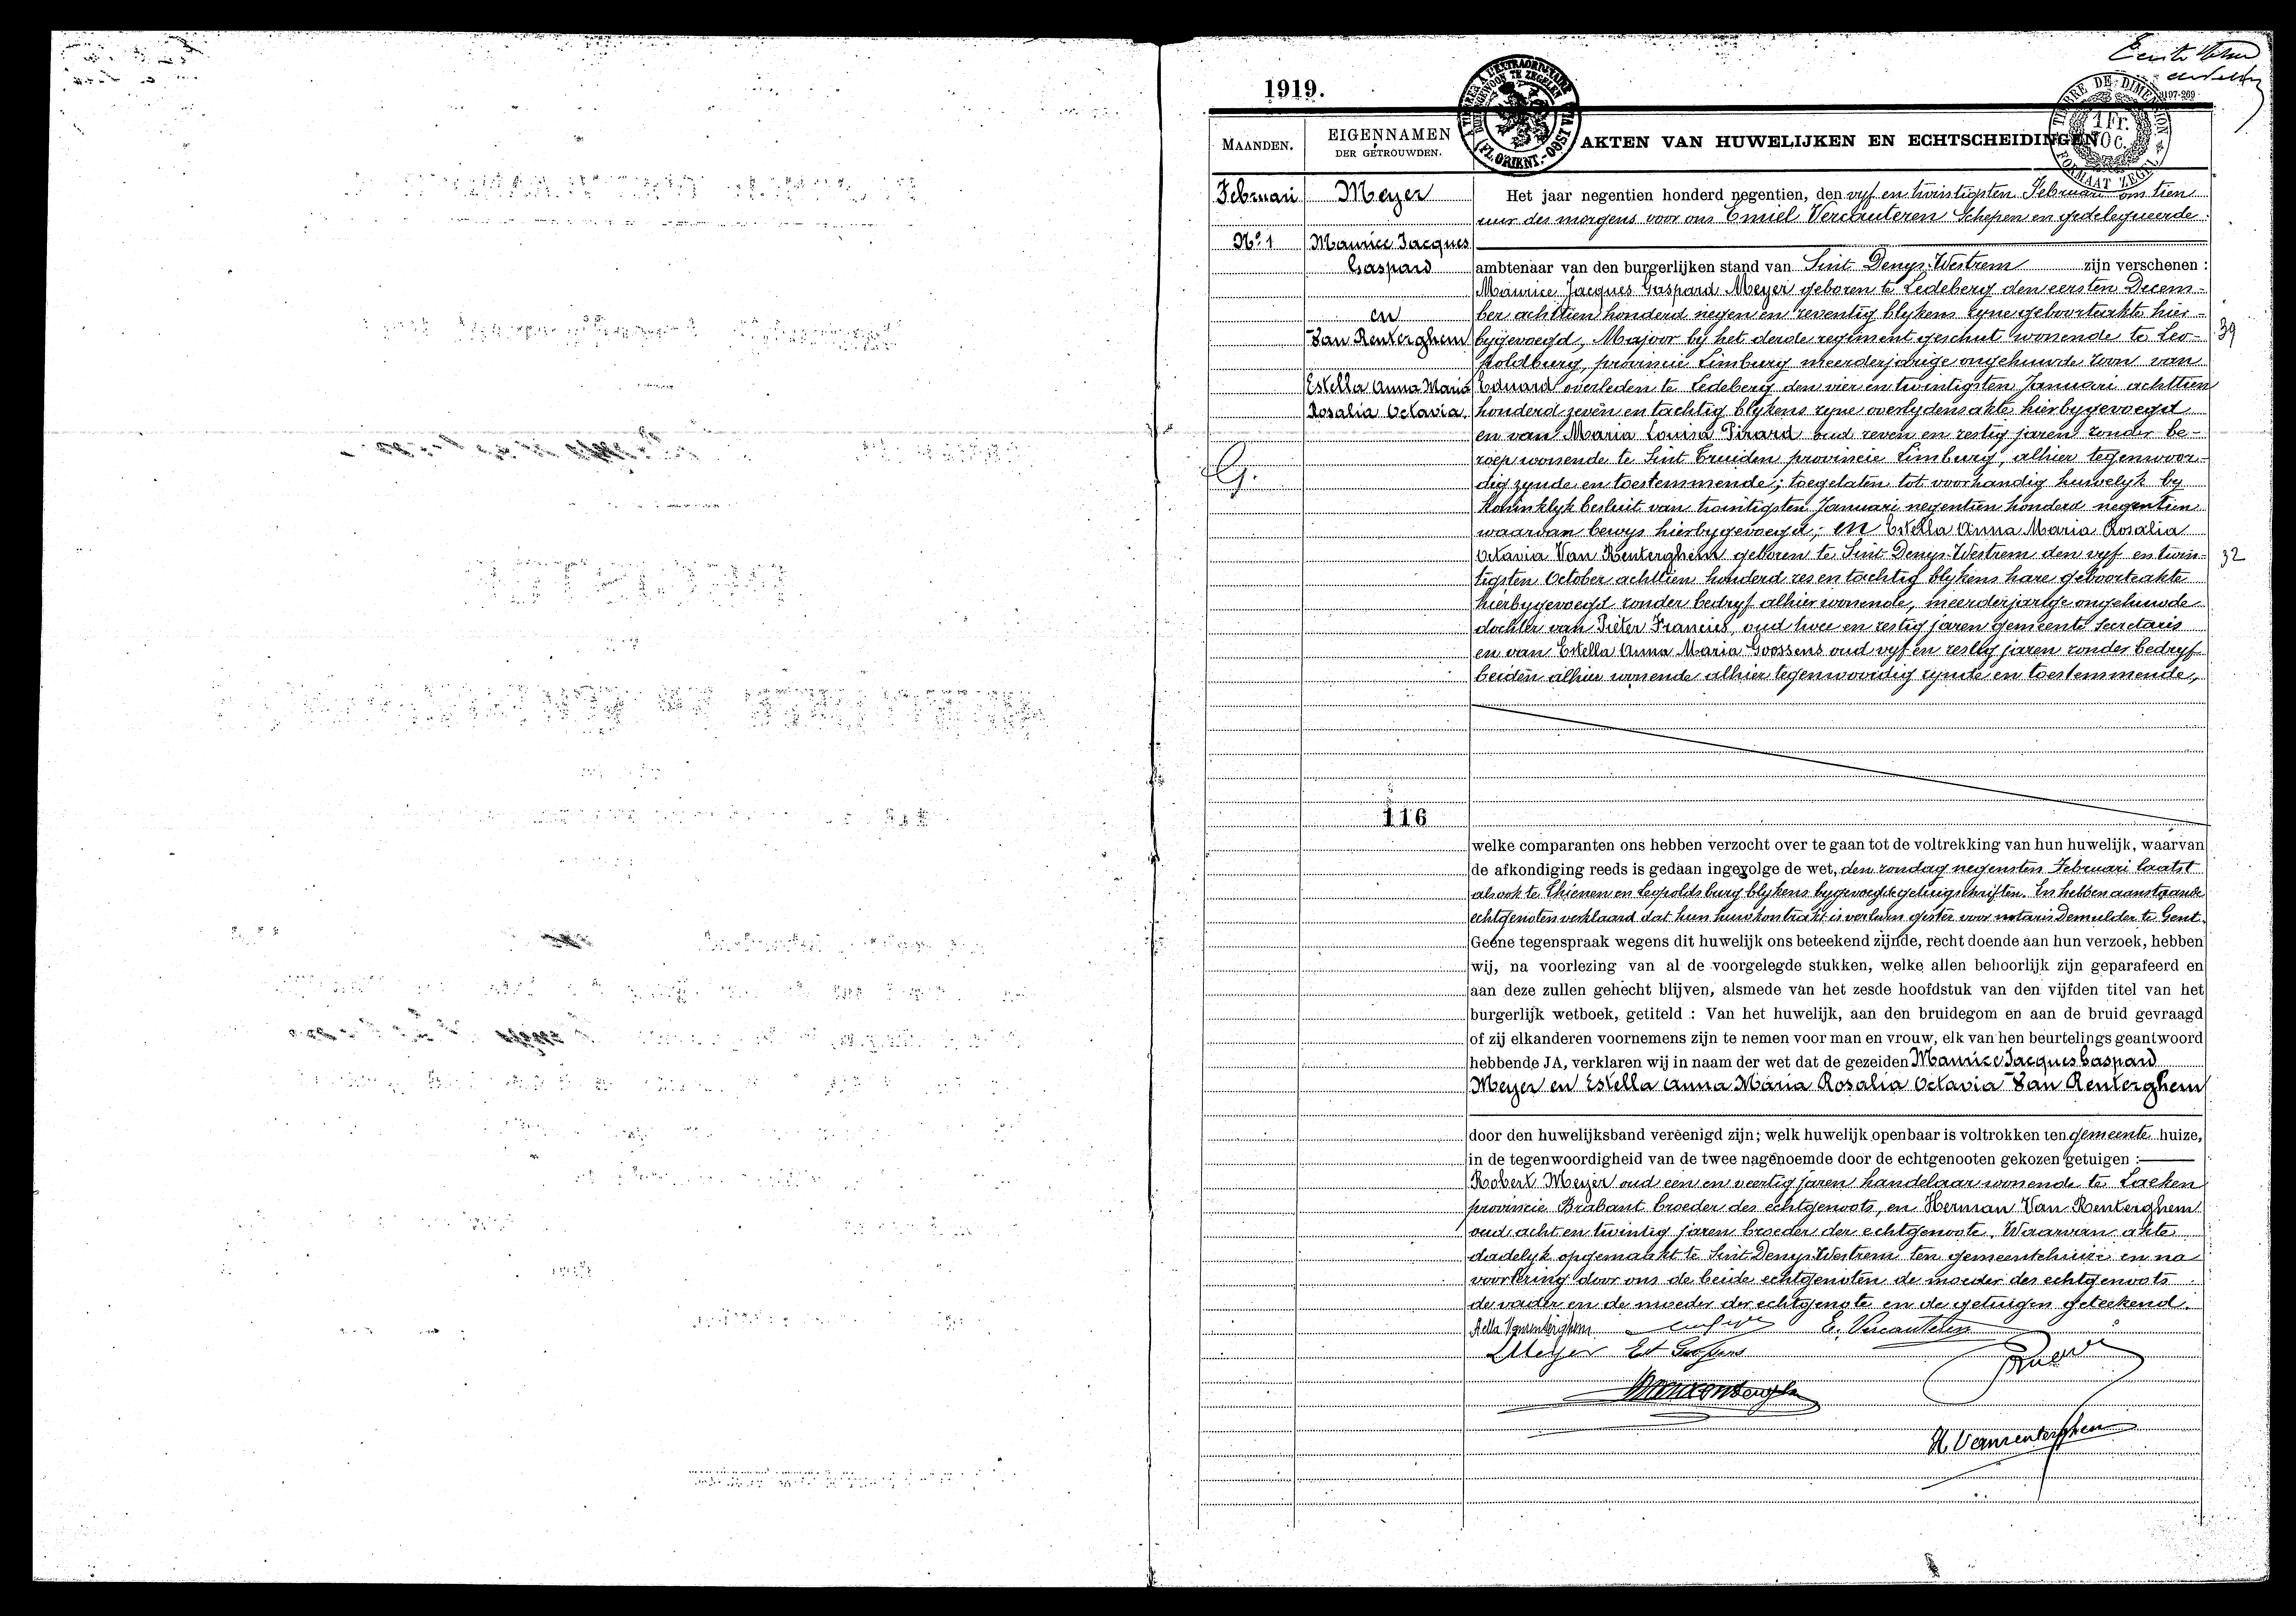 1919.
MAANDEN.
EIGENNAMEN
DER GETROUWDEN.
AKTEN VAN HUWELIJKEN EN ECHTSCHEIDINGEN
TIMBRE DE DIMENSION
FORMAAT ZEGEL
1 Fr.
70 c.
Februari
No 1
Meyer
Maurice Jacques
Gaspard
en
Van Renterghem
Estella Anna Maria
Rosalia Octavia.
116
Het jaar negentien honderd negentien, den vyf en twintigsten Februari om tien
uur des morgens voor ons Emiel Vercauteren Schepen en gedelegueerde
ambtenaar van den burgerlijken stand van Sint Denys-Westrem zijn verschenen :
Maurice Jacques Gaspard Meyer geboren te Ledeberg den eersten Decem-
ber achttien honderd negen en zeventig blykens zyne geboorteakte hier-
bygevoegd, Majoor by het derde regiment geschut wonende te Leo-
39
poldburg, provincie Limburg meerderjarige ongehuwde zoon van
Eduard overleden te Ledeberg den vier en twintigsten Januari achttien
honderd zeven en tachtig blykens zyne overlydensakte hierbygevoegd
en van Maria Louisa Pirard oud zeven en zestig jaren zonder be-
roep wonende te Sint Truiden provincie Limburg, alhier tegenwoor-
dig zynde en toestemmende; toegelaten tot voorhandig huwelyk by
Koninklyk besluit van twintigsten Januari negentien honderd negentien
waarvan bewys hierbygevoegd; en Estella Anna Maria Rosalia
Octavia Van Renterghem geboren te Sint Denys-Westrem den vyf en twin-
32
tigsten October achttien honderd zes en tachtig blykens hare geboorteakte
hierbygevoegd zonder bedryf alhier wonende, meerderjarige ongehuwde
dochter van Pieter Francies, oud twee en zestig jaren gemeente secretaris
en van Estella Anna Maria Goossens oud vyf en zestig jaren zonder bedryf
beiden alhier wonende alhier tegenwoordig zynde en toestemmende,
welke comparanten ons hebben verzocht over te gaan tot de voltrekking van hun huwelijk, waarvan
de afkondiging reeds is gedaan ingevolge de wet, den zondag negensten Februari laatst
alsook te Thienen en Leopoldsburg blykens bygevoegde getuigschriften. En hebben aanstaande
echtgenoten verklaard dat hun huwkontrakt is verleden gister voor notaris Demulder te Gent.
Geene tegenspraak wegens dit huwelijk ons beteekend zijnde, recht doende aan hun verzoek, hebben
wij, na voorlezing van al de voorgelegde stukken, welke allen behoorlijk zijn geparafeerd en
aan deze zullen gehecht blijven, alsmede van het zesde hoofdstuk van den vijfden titel van het
burgerlijk wetboek, getiteld : Van het huwelijk, aan den bruidegom en aan de bruid gevraagd
of zij elkanderen voornemens zijn te nemen voor man en vrouw, elk van hen beurtelings geantwoord
hebbende JA, verklaren wij in naam der wet dat de gezeiden Maurice Jacques Gaspard
Meyer en Estella Anna Maria Rosalia Octavia Van Renterghem
door den huwelijksband vereenigd zijn; welk huwelijk openbaar is voltrokken ten gemeente huize,
in de tegenwoordigheid van de twee nagenoemde door de echtgenooten gekozen getuigen :
Robert Meyer oud een en veertig jaren handelaar wonende te Laeken
provincie Brabant broeder des echtgenoots en Herman Van Renterghem
oud acht en twintig jaren broeder der echtgenoote. Waarvan akte
dadelyk opgemaakt te Sint Denys-Westrem ten gemeentehuize en na
voorlezing door ons de beide echtgenoten de moeder des echtgenoots
de vader en de moeder der echtgenote en de getuigen geteekend.
E. Vercauteren
Meyer Et Goossens
H. Vanrenterghem